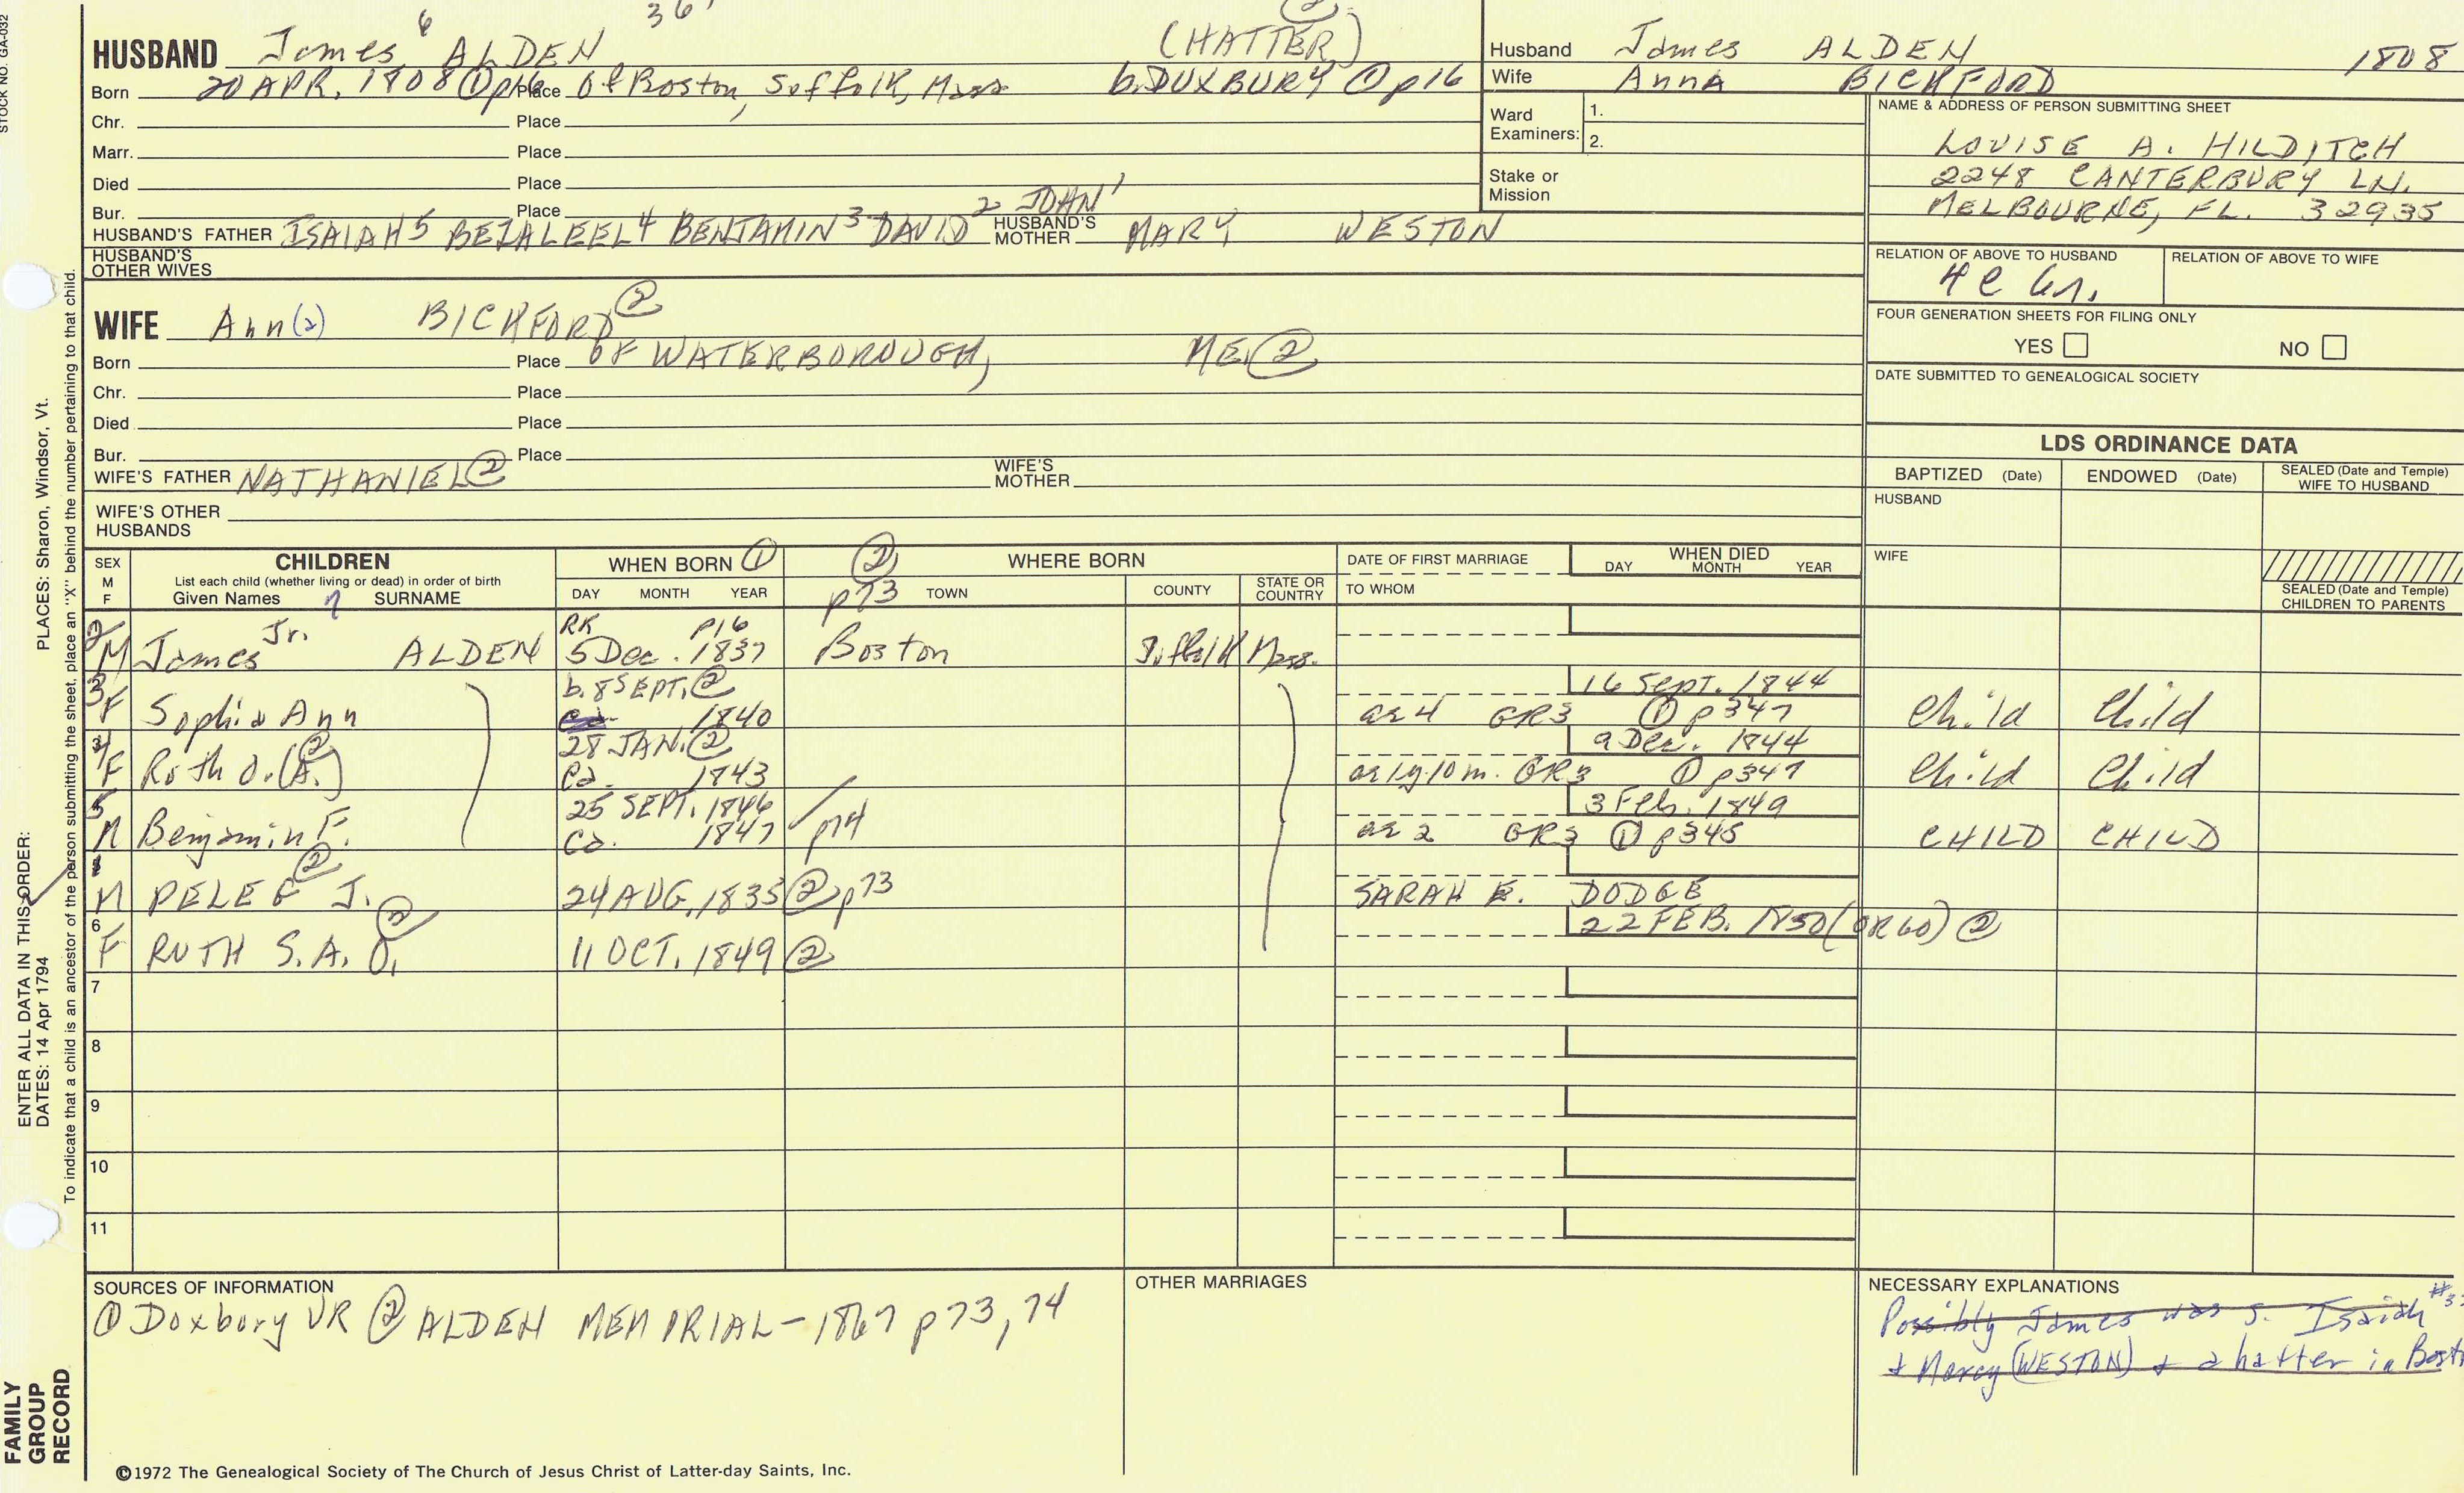 STOCK NO. GA-032
6 36
(HATTER) ②
HUSBAND James ALDEN
Born 20 APR. 1808 ① p16 Place Of Boston, Suffolk, Mass b. DUXBURY ① p16
Chr. Place
Marr. Place
Died Place
Bur. Place
HUSBAND'S FATHER ISAIAH5 BEZALEEL4 BENJAMIN3 DAVID2 JOHN1 HUSBAND'S MOTHER MARY WESTON
HUSBAND'S OTHER WIVES
WIFE Ann (2) BICKFORD ②
Born Place OF WATERBOROUGH, ME ②
Chr. Place
Died Place
Bur. Place
WIFE'S FATHER NATHANIEL ② WIFE'S MOTHER
WIFE'S OTHER HUSBANDS
Husband James ALDEN 1808
Wife Anna BICKFORD
Ward Examiners: 1.
2.
Stake or Mission
NAME & ADDRESS OF PERSON SUBMITTING SHEET
LOUISE A. HILDITCH
2248 CANTERBURY LN.
MELBOURNE, FL. 32935
RELATION OF ABOVE TO HUSBAND RELATION OF ABOVE TO WIFE
4 C
FOUR GENERATION SHEETS FOR FILING ONLY
YES NO
DATE SUBMITTED TO GENEALOGICAL SOCIETY
LDS ORDINANCE DATA
BAPTIZED (Date) ENDOWED (Date) SEALED (Date and Temple) WIFE TO HUSBAND
HUSBAND
WIFE
SEALED (Date and Temple) CHILDREN TO PARENTS
SEX M F CHILDREN WHEN BORN ① ② p73 WHERE BORN DATE OF FIRST MARRIAGE WHEN DIED
List each child (whether living or dead) in order of birth
Given Names 7 SURNAME DAY MONTH YEAR TOWN COUNTY STATE OR COUNTRY TO WHOM DAY MONTH YEAR
RK p16
2 M James Jr. ALDEN 5 Dec. 1837 Boston Suffolk Mass.
b. 8 SEPT. ② 16 Sept. 1844
3 F Sophia Ann 1840 ae 4 GR3 ① p347 Child Child
28 JAN. ② 9 Dec. 1844
F Ruth O. (A.) ② Ca. 1843 ae 1y. 10 m. GR3 ① p347 Child Child
25 SEPT. 1846 3 Feb. 1849
5 M Benjamin F. Ca. 1847 p74 ae 2 GR3 ① p345 CHILD CHILD
1 M PELEG J. ② 24 AUG. 1835 ② p73 SARAH E. DODGE
22 FEB. 1850 (OR 60) ②
6 F RUTH S. A. O. ② 11 OCT. 1849 ②
7
8
9
10
11
SOURCES OF INFORMATION
① Duxbury VR ② ALDEN MEMORIAL - 1867 p73, 74
OTHER MARRIAGES
NECESSARY EXPLANATIONS
Possibly James was s. Isaiah
+ Marcy (WESTON) + a hatter in
©1972 The Genealogical Society of The Church of Jesus Christ of Latter-day Saints, Inc.
FAMILY GROUP RECORD
ENTER ALL DATA IN THIS ORDER:
DATES: 14 Apr 1794
PLACES: Sharon, Windsor, Vt.
To indicate that a child is an ancestor of the person submitting the sheet, place an "X" behind the number pertaining to that child.